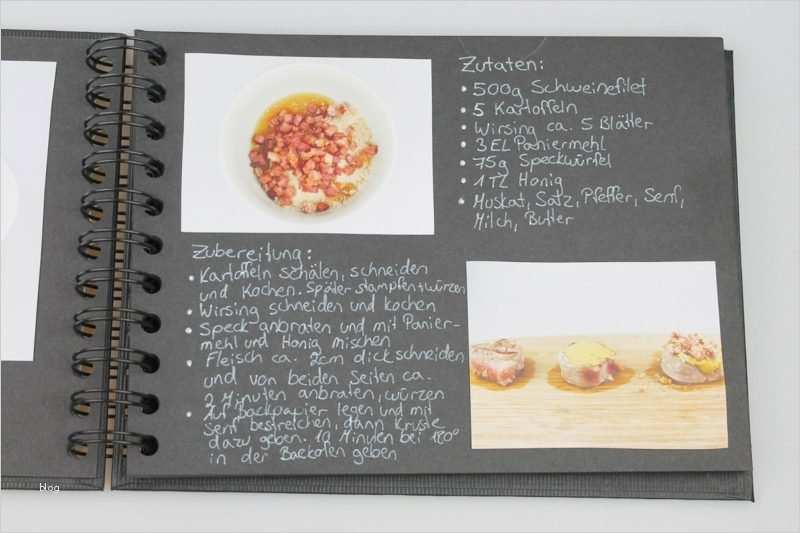 Zutaten:
• 500g Schweinefilet
• 5 Kartoffeln
• Wirsing ca. 5 Blätter
• 3 EL Paniermehl
• 75g Speckwürfel
• 1 TL Honig
• Muskat, Salz, Pfeffer, Senf,
Milch, Butter
Zubereitung:
• Kartoffeln schälen, schneiden
und kochen. Später stampfen + würzen
• Wirsing schneiden und kochen
• Speck anbraten und mit Panier-
mehl und Honig mischen
• Fleisch ca. 2cm dick schneiden
und von beiden Seiten ca.
2 Minuten anbraten, würzen
• Auf Backpapier legen und mit
Senf bestreichen, dann Kruste
dazu geben. 10 Minuten bei 180°
in der Backofen geben
blog